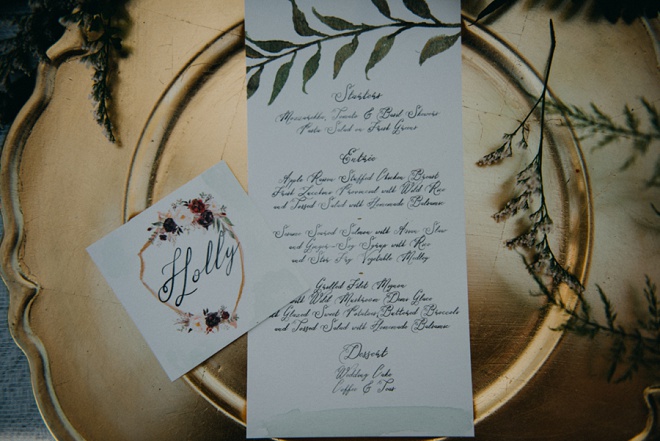 Holly
Starters
Mozzarella, Tomato & Basil Skewers
Pasta Salad on Fresh Greens
Entrée
Apple Raisin Stuffed Chicken Breast
Fresh Zucchini Provencal with Wild Rice
and Tossed Salad with Homemade Balsamic
~
Sesame Seared Salmon with Anise Star
and Ginger-Soy Syrup with Rice
and Stir Fry Vegetable Medley
~
Grilled Filet Mignon
with Wild Mushroom Demi Glace
with Glazed Sweet Potatoes, Buttered Broccoli
and Tossed Salad with Homemade Balsamic
Dessert
Wedding Cake
Coffee & Teas